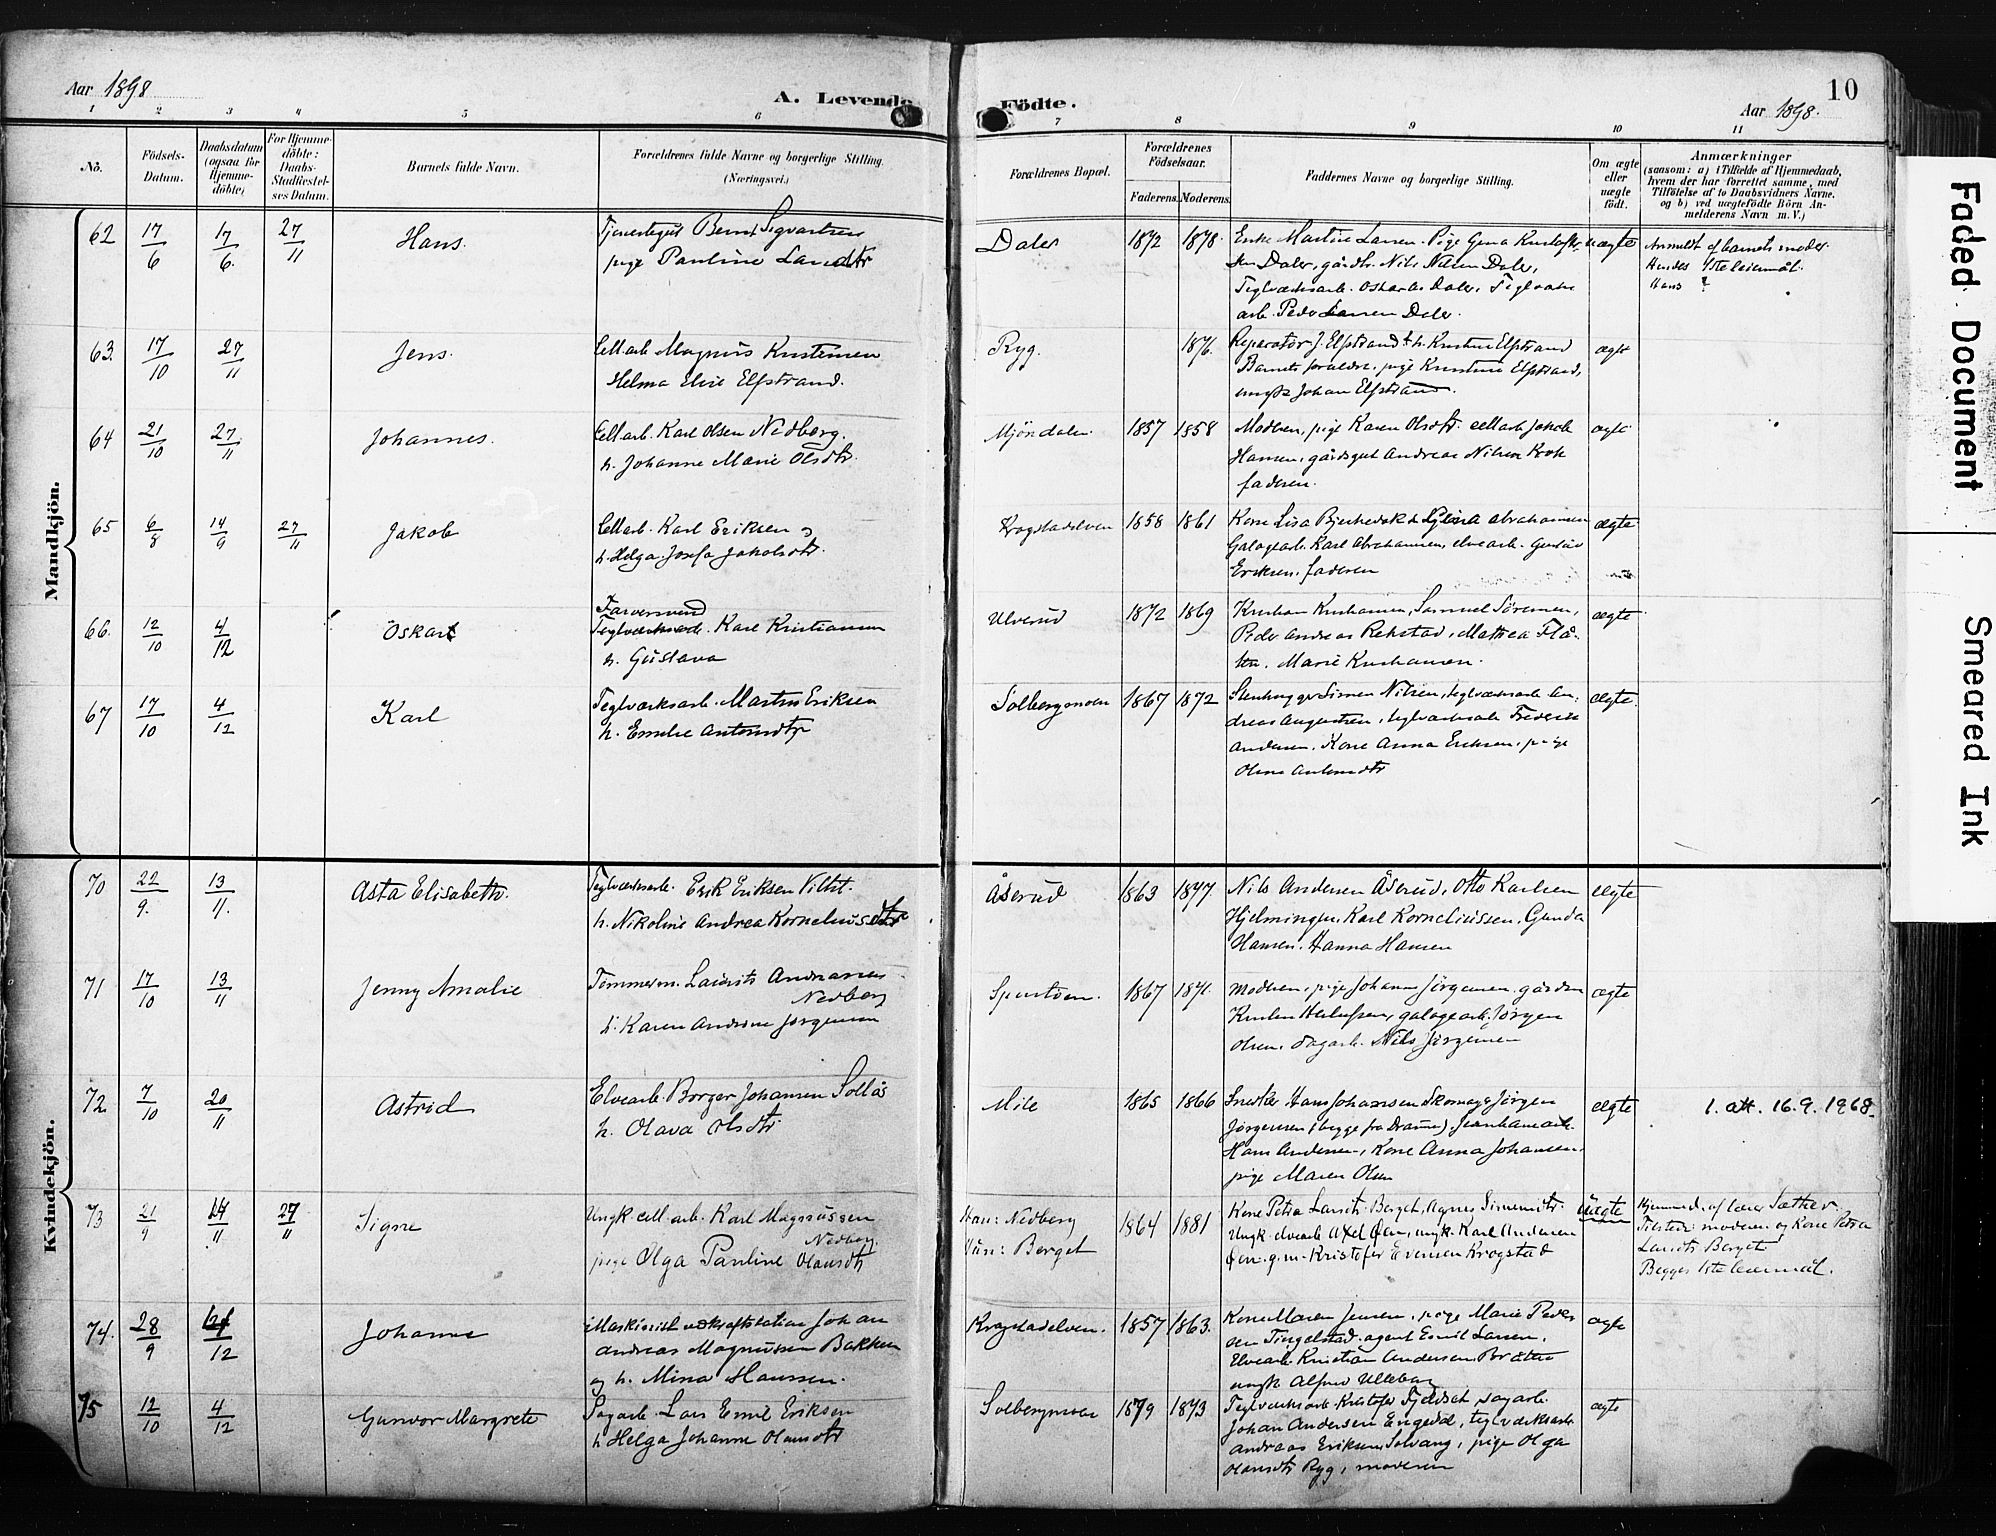 Aar 1898
A. Levende Fødte.
Aar 1898.
10
1 2 3 4 5 6 7 8 9 10 11
No.
Födsels-Datum.
Daabsdatum (ogsaa for Hjemme-döbte)
For Hjemme-döbte: Daabs-Stadfæstel-ses Datum.
Barnets fulde Navn.
Forældrenes fulde Navne og borgerlige Stilling. (Næringsvei.)
Forældrenes Bopæl.
Forældrenes Födselsaar.
Faderens. Moderens.
Faddernes Navne og borgerlige Stilling.
Om ægte eller uægte födt.
Anmærkninger
(saasom: a) i Tilfælde af Hjemmedaab,
hvem der har forrettet samme, med
Tilföielse af to Daabsvidners Navne.
og b) ved uægtefödte Börn An-
melderens Navn m. V.)
Mandkjön.
62 17/6 17/6. 27/11 Hans. Tjenestegut Bernt Sigvartsen
pige Pauline Larsdtr
Daler 1872 1878. Enke Martine Larsen. Pige Gina Kristoffer-
sen Daler, gårdbr. Nils Nilsen Daler,
Teglværksarb. Oskar A. Daler, Teglværks
arb. Peder Larsen Daler.
uægte
Anmeldt af barnets moder.
Hendes 1ste leiermål.
Hans ?
63. 17/10 27/11 Jens. Cell.arb Magnus Kristensen
Helma Elise Elfstrand.
Ryg. 1876. Reparatør J. Elfstrand & h. Kristine Elfstrand
Barnets forældre, pige Kristine Elfstrand,
ungk. Johan Elfstrand.
ægte
64 21/10 27/11 Johannes. Cell.arb. Karl Olsen Nedberg.
h. Johanne Marie Olsdtr.
Mjöndalen 1857 1858 Moderen, pige Karen Olsdtr. cell.arb Jakob
Hansen, gårdsgut Andreas Nilsen Krok
faderen.
ægte
65 6/8 14/9 27/11 Jakob Cell.arb. Karl Eriksen og
h. Helga Josefa Jakobsdtr.
Krogstadelven 1858 1861 Kone Lisa Bjerkedok & Abrahamsen
Galogearb. Karl Abrahamsen, elvearb. Gustav
Eriksen. faderen
ægte
66. 12/10 4/12 Oskar Farversvend
Teglværksarb. Karl Kristiansen
h. Gustava
Ulverud 1872 1869 Kristian Kristiansen, Samuel Sörensen,
Peder Andreas Rekstad, Mathea Flå-
ten. Marie Kristiansen.
ægte
67 17/10 4/12 Karl Teglværksarb. Martin Eriksen
h. Emelie Antonsdtr
Solbergmoen 1867 1872 Stenhugger Simen Nilsen, teglværksarb An-
dreas Augustsen, teglværksarb Frederik
Andersen. Kone Anna Eriksen. pige
Oline Antonsdtr
ægte.
Kvindekjön.
70 22/9. 13/11. Asta Elisabeth. Teglværksarb. Erik Eriksen Viltet.
h. Nikoline Andrea Korneliusdtr
Åserud 1863 1877. Nils Andersen Åserud, Otto Karlsen
Hjelmingen, Karl Korneliussen, Gunda
Hansen. Hanna Hansen
ægte
71 17/10 13/11 Jenny Amalie Tömmerm. Laurits Andreasen
Nedberg
h. Karen Andrine Jörgensen
Spurtöen. 1867 1871. Moderen, pige Johanne Jörgensen. gårdm
Kristen Herlofsen, galogearb. Jörgen
Olsen. dagarb. Nils Jörgensen
ægte
72. 7/10 20/11 Astrid Elvearb. Borger Johansen Sollås
h. Olava Olsdtr
Mile 1865 1866 Snedker Hans Johansen Skomager Jörgen
Jörgensen (begge fra Drammen). jernbanearb.
Hans Andersen, Kone Anna Johansen.
pige Maren Olsen
ægte
1. att. 16.9.1968.
73 21/9 14/11 27/11 Signe Ungk. cell.arb. Karl Magnussen
Nedberg.
pige Olga Pauline Olausdtr
Han: Nedberg
Hun: Berget
1864 1881 Kone Petra Laurits Berget, Agnes Simensdtr.
Ungk. elvearb Axel Öen, ungk. Karl Andersen
Öen. g.m. Kristofer Evensen Krogstad
Uægte
Hjemmed. af lærer Sæther.
Tilstede: moderen og Kone Petra
Laurits Berget.
Begges 1ste leiermål.
74. 28/9 4/12 Johanne Maskinist v. kraftstation Johan
Andreas Magnussen Bakken
og h. Mina Hanssen.
Krogstadelven. 1857 1863. Kone Maren Jensen, pige Marie Peder-
sen Tingelstad. agent Emil Larsen,
Elvearb. Kristian Andersen Bråten
ungk Alfred Ulleberg
ægte
75 12/10 4/12 Gunvor Margrete Sagarb. Lars Emil Eriksen
h. Helga Johanne Olausdtr
Solbergmoen 1879 1873 Teglværksarb. Kristofer Fydset, sagarb.
Johan Andersen Engedal, teglværksarb
Andreas Eriksen Solvang, pige Olga
Olausdtr Ryg, moderen
ægte
Faded Document
Smeared Ink